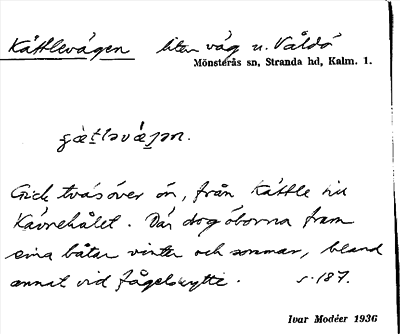 Kättlevägen liten väg u. Valdö
Mönsterås sn, Stranda hd, Kalm. 1.
Gick tvärsöver ön, från Kättle till
Kävrehålet. Där drog öborna fram
sina båtar vinter och sommar, bland
annat vid fågelskytte. s. 187.
Ivar Modéer 1936